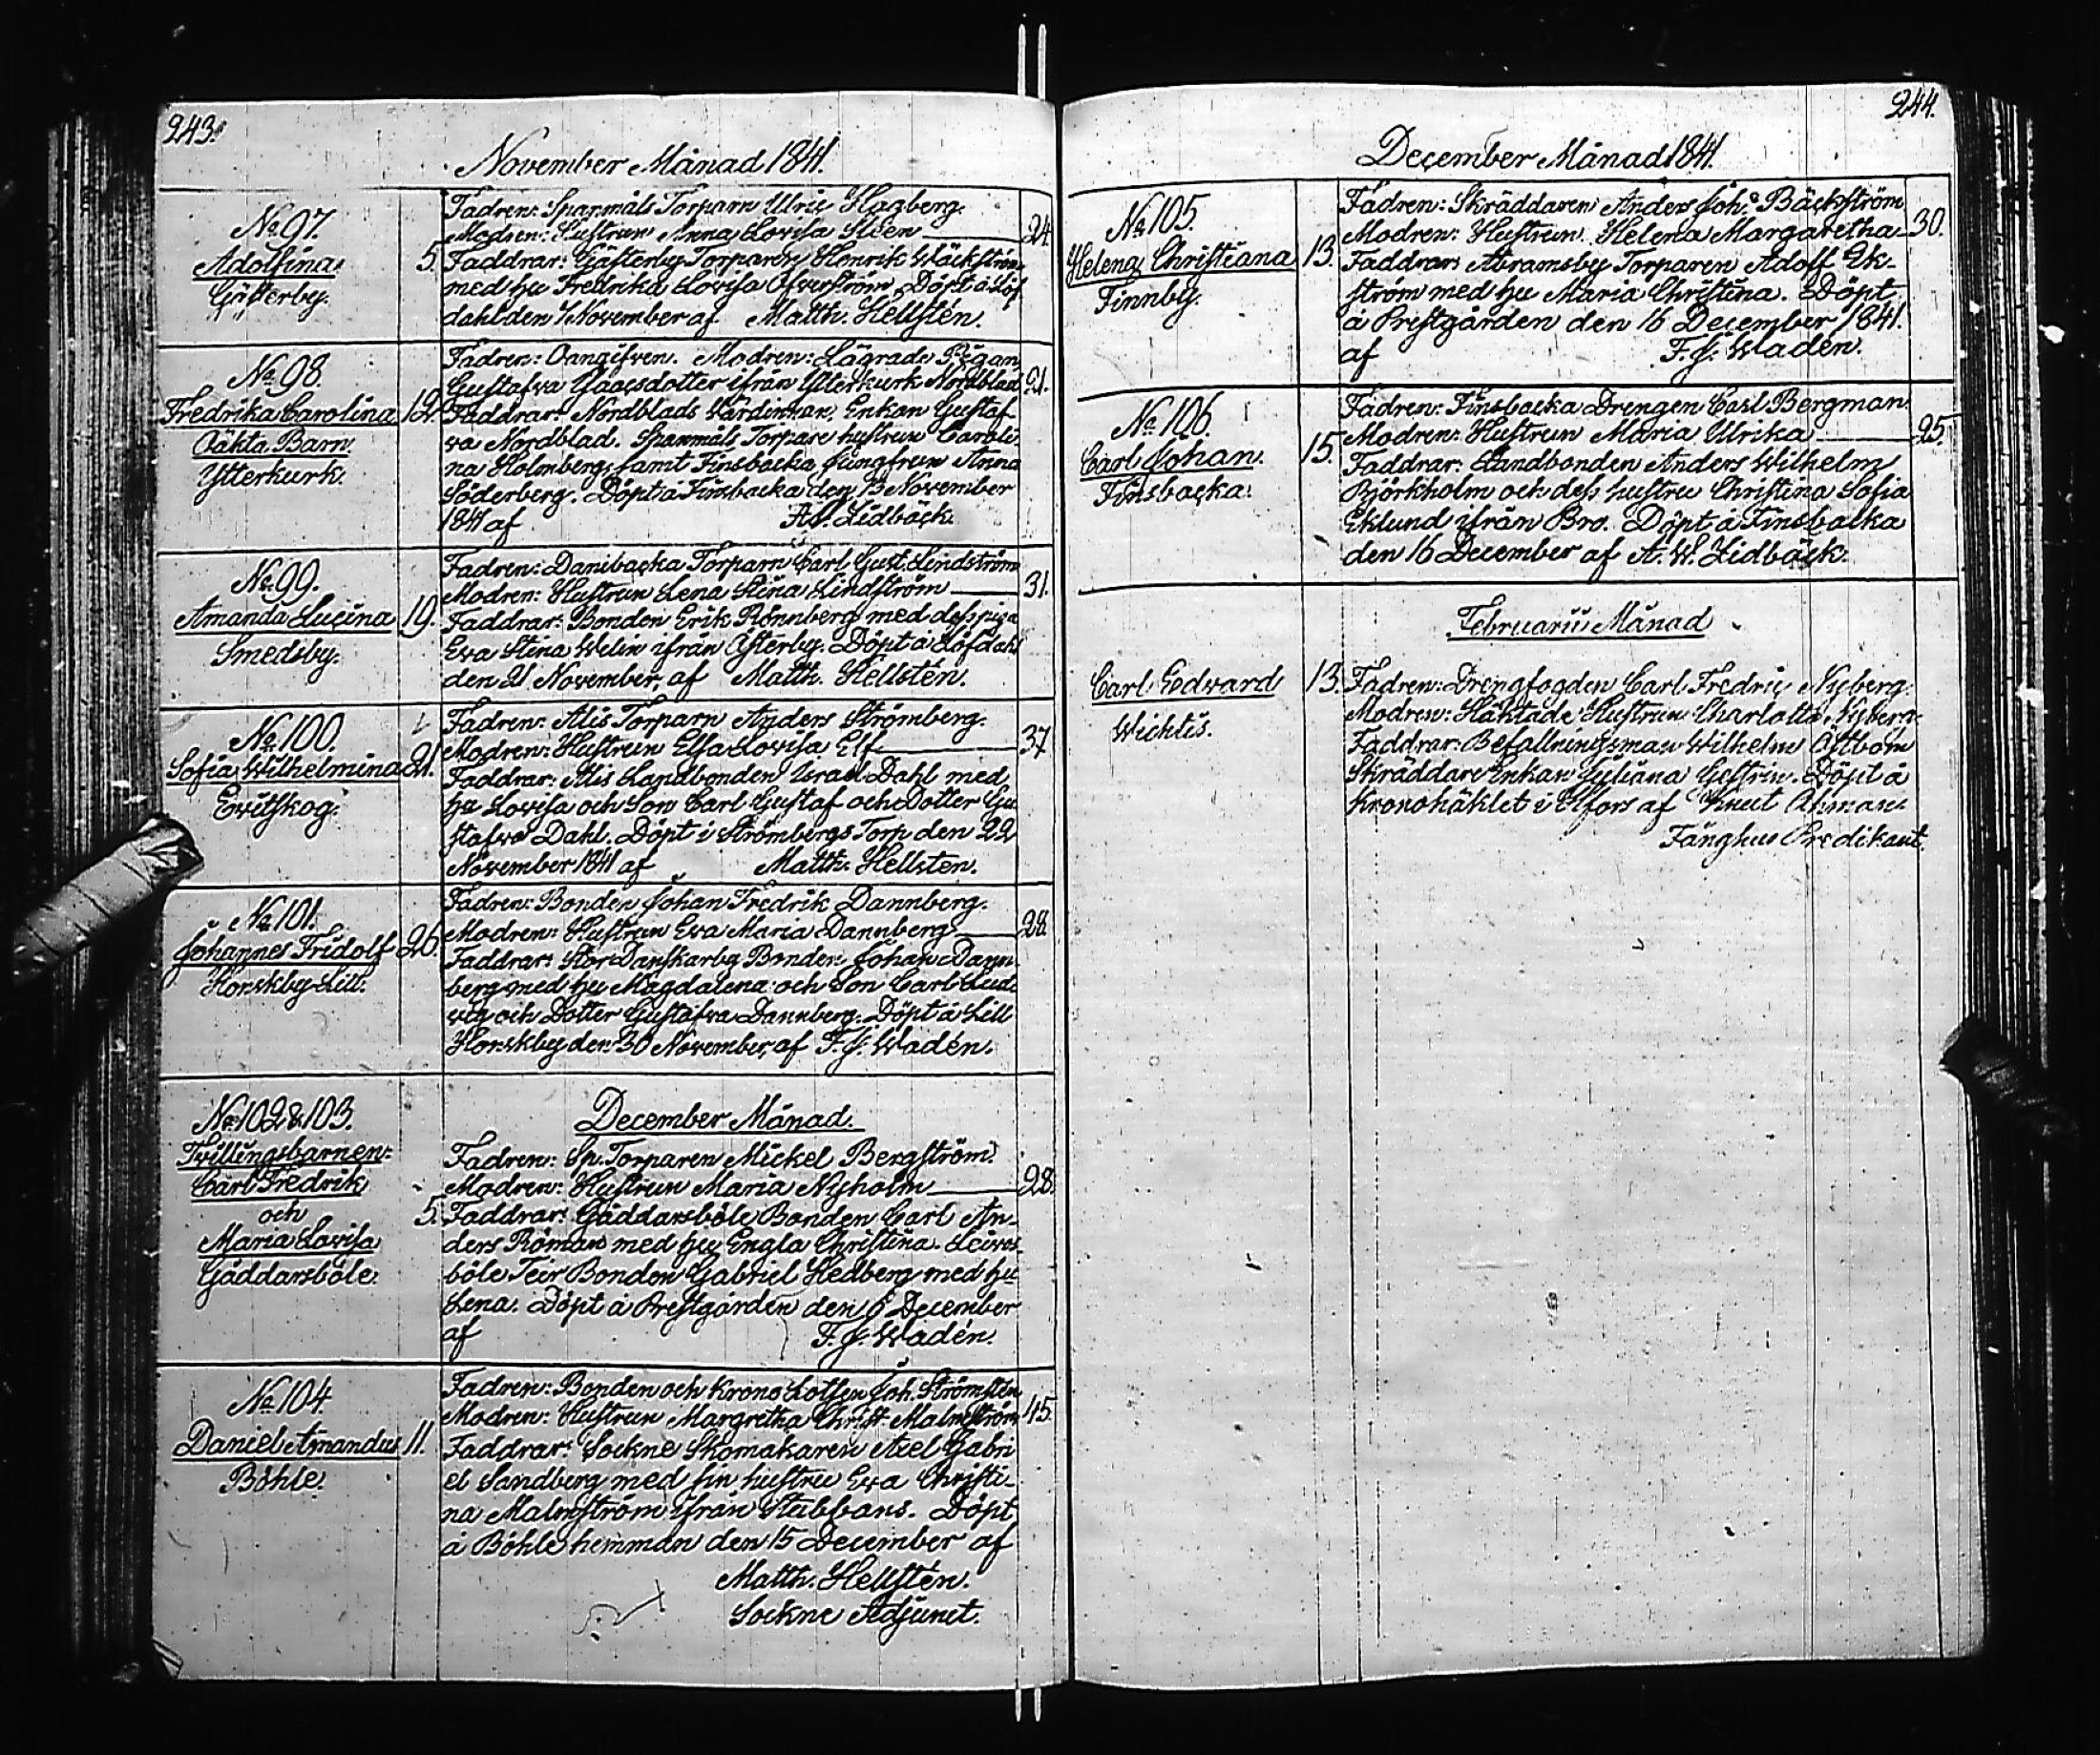 243.
November Månad 1841.
No 97.
Adolfina
Gästerby.
5.
Fadren: Spanmåls Torparn Ulric Hagberg.
Modren: Hustrun Anna Lovisa
24.
Faddrar: Gästerby Torparen Henrik Wäckström
med hu Fredrika Lovisa Öfverström. Döpt å Löf
dahl den 7 November af Matth. Hellstén.
No 98.
Fredrika Carolina
Oäkta Barn.
Ytterkurk.
12.
Fadren: Oangifven. Modren: Lägrade Pigan
Gustafva Isaacsdotter ifrån Ytterkurk Nordblad
21.
Faddrar: Nordblads Värdinnan, Enkan Gustaf
va Nordblad. Spanmåls Torpare hustrun Caroli
na Holmberg, samt Finsbacka Jungfrun Anna
Söderberg. Döpt å Finsbacka den 13 November
1841 af A.W. Lidbäck.
No 99.
Amanda Lucina
Smedsby.
19.
Fadren: Danibacka Torparn Carl Gust. Lindström
Modren: Hustrun Lena Stina Lindström
31.
Faddrar: Bonden Erik Rönnberg med dess piga
Eva Stina Welin ifrån Österby. Döpt å Löfdahl
den 21 November, af Matth. Hellstén.
No 100.
Sofia Wilhelmina
Evitskog.
21.
Fadren: Alis Torparn Anders Strömberg.
Modren: Hustrun Elsa Lovisa Elf
37
Faddrar: Alis Landbonden Israel Dahl med
hu Lovisa och Son Carl Gustaf och Dotter Gu
stafva Dahl. Döpt i Strömbergs Torp den 22
November 1841 af Matth. Hellsten.
No 101.
Johannes Fridolf
Honskby Lill.
26.
Fadren: Bonden Johan Fredrik Dannberg.
Modren: Hustrun Eva Maria Dannberg
28.
Faddrar: Stor Danskarby Bonden Johan Dann
berg med hu Magdalena och Son Carl Lud
vig och Dotter Gustafva Dannberg. Döpt å Lill
Honskby den 30 November, af F.J. Wadén.
No 102 & 103.
Tvillingsbarnen:
Carl Fredrik
och
Maria Lovisa
Gäddarsböle.
5.
December Månad.
Fadren: Sp. Torparen Mickel Bergström.
Modren: Hustrun Maria Nyholm
28.
Faddrar: Gäddarsböle Bonden Carl An-
ders Röman med hu Engla Christina.
böle Teir Bonden Gabriel Hedberg med hu
Lena. Döpt å Prestgården den 6 December
af F.J. Wadén.
No 104
Daniel Amandus
Böhle.
11.
Fadren: Bonden och Krono Lotsen Joh. Strömsten
Modren: Hustrun Margretha Christ. Malmström
45.
Faddrar: Sockne Skomakaren Axel Gabri
el Sandberg med sin hustru Eva Christi-
na Malmström ifrån Stabbans. Döpt
å Böhle hemman den 15 December af
Matth. Hellstén.
Sockne Adjunct.
244.
December Månad 1841.
No 105.
Helena Christiana
Finnby.
13.
Fadren: Skräddaren Anders Joh. Bäckström
Modren: Hustrun Helena Margaretha
30.
Faddrar: Abramsby Torparen Adolf Ek-
ström med hu Maria Christina. Döpt
å Prestgården den 16 December 1841.
af F.J. Wadén.
No 106.
Carl Johan.
Finsbacka.
15.
Fadren: Finsbacka Drengen Carl Bergman
Modren: Hustrun Maria Ulrika
25.
Faddrar: Landbonden Anders Wilhelm
Björkholm och dess hustru Christina Sofia
Eklund ifrån Bro. Döpt å Finsbacka
den 16 December af A.W. Lidbäck.
Februarii Månad
Carl Edvard
Wichtis.
13.
Fadren: Drengfogden Carl Fredric Nyberg.
Modren: Häktade Hustrun Charlotta Nyberg
Faddrar: Befallningsman Wilhelm Östbom
Skräddare Enkan Juliana Gestrin. Döpt å
Kronohäktet i Hfors af Knut Åhman
Fånghus Predikant.